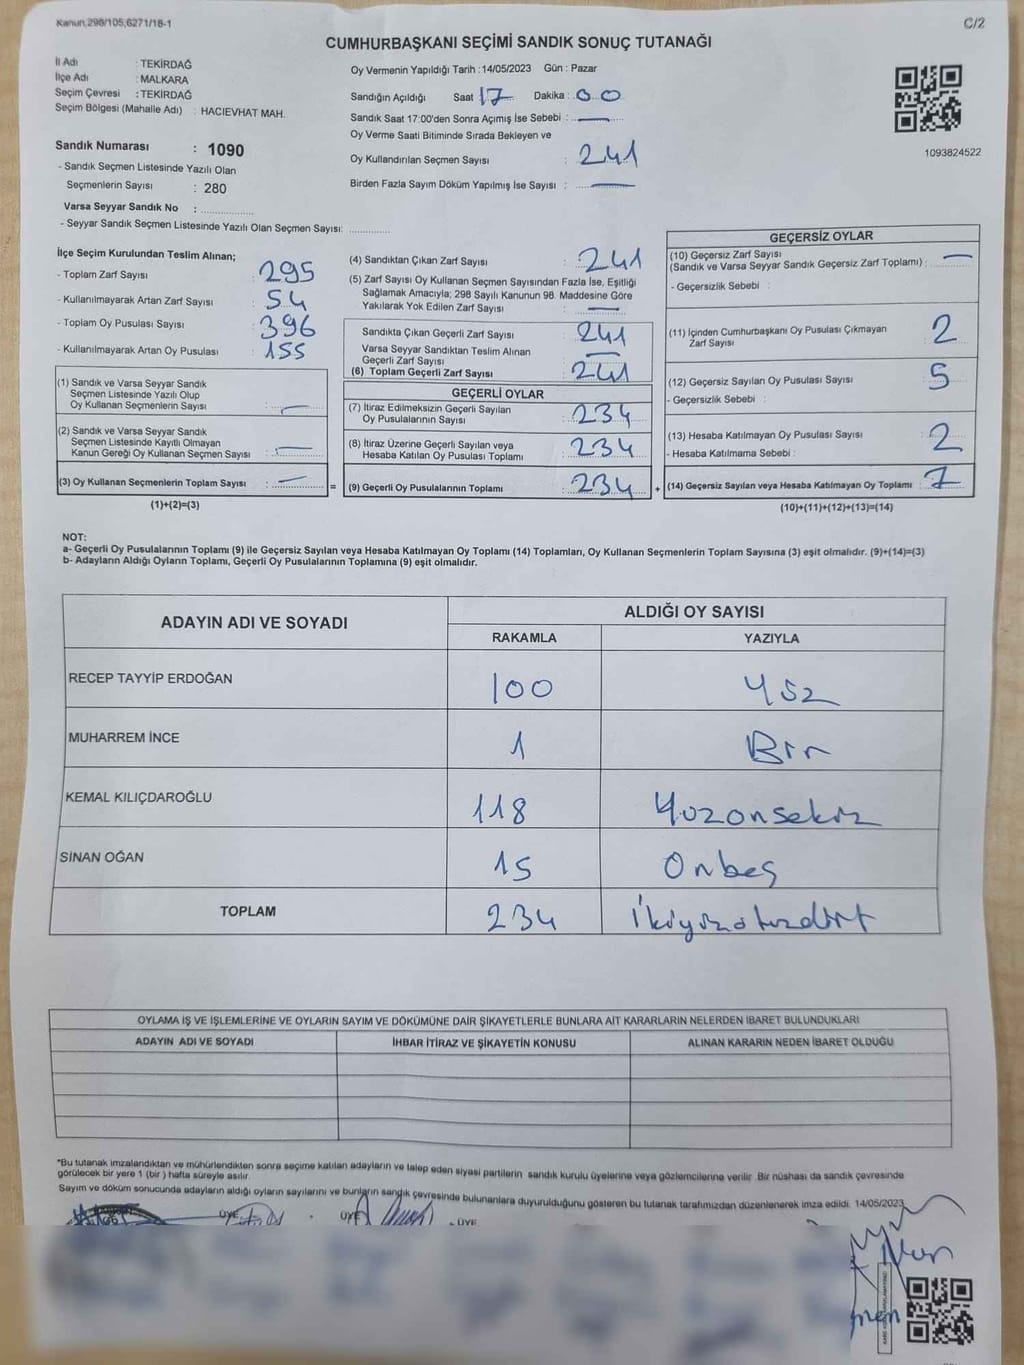 Kanun,298/105,6271/18-1
C/2
CUMHURBAŞKANI SEÇİMİ SANDIK SONUÇ TUTANAĞI
İl Adı : TEKİRDAĞ
İlçe Adı : MALKARA
Seçim Çevresi : TEKİRDAĞ
Seçim Bölgesi (Mahalle Adı) : HACIEVHAT MAH.
Sandık Numarası : 1090
- Sandık Seçmen Listesinde Yazılı Olan
Seçmenlerin Sayısı : 280
Varsa Seyyar Sandık No : ................
- Seyyar Sandık Seçmen Listesinde Yazılı Olan Seçmen Sayısı: ............
Oy Vermenin Yapıldığı Tarih :14/05/2023 Gün : Pazar
Sandığın Açıldığı Saat 17 Dakika : 00
Sandık Saat 17:00'den Sonra Açımış İse Sebebi : —
Oy Verme Saati Bitiminde Sırada Bekleyen ve
Oy Kullandırılan Seçmen Sayısı : 241
Birden Fazla Sayım Döküm Yapılmış İse Sayısı : —
1093824522
İlçe Seçim Kurulundan Teslim Alınan;
- Toplam Zarf Sayısı : 295
- Kullanılmayarak Artan Zarf Sayısı : 54
- Toplam Oy Pusulası Sayısı : 396
- Kullanılmayarak Artan Oy Pusulası : 155
(1) Sandık ve Varsa Seyyar Sandık
Seçmen Listesinde Yazılı Olup
Oy Kullanan Seçmenlerin Sayısı : —
(2) Sandık ve Varsa Seyyar Sandık
Seçmen Listesinde Kayıtlı Olmayan
Kanun Gereği Oy Kullanan Seçmen Sayısı : —
(3) Oy Kullanan Seçmenlerin Toplam Sayısı : — =
(1)+(2)=(3)
(4) Sandıktan Çıkan Zarf Sayısı : 241
(5) Zarf Sayısı Oy Kullanan Seçmen Sayısından Fazla İse, Eşitliği
Sağlamak Amacıyla; 298 Sayılı Kanunun 98. Maddesine Göre
Yakılarak Yok Edilen Zarf Sayısı : —
Sandıkta Çıkan Geçerli Zarf Sayısı : 241
Varsa Seyyar Sandıktan Teslim Alınan
Geçerli Zarf Sayısı : —
(6) Toplam Geçerli Zarf Sayısı : 241
GEÇERLİ OYLAR
(7) İtiraz Edilmeksizin Geçerli Sayılan
Oy Pusulalarının Sayısı : 234
(8) İtiraz Üzerine Geçerli Sayılan veya
Hesaba Katılan Oy Pusulası Toplamı : 234
(9) Geçerli Oy Pusulalarının Toplamı : 234 +
GEÇERSİZ OYLAR
(10) Geçersiz Zarf Sayısı
(Sandık ve Varsa Seyyar Sandık Geçersiz Zarf Toplamı) : —
- Geçersizlik Sebebi :
(11) İçinden Cumhurbaşkanı Oy Pusulası Çıkmayan
Zarf Sayısı : 2
(12) Geçersiz Sayılan Oy Pusulası Sayısı : 5
- Geçersizlik Sebebi :
(13) Hesaba Katılmayan Oy Pusulası Sayısı : 2
- Hesaba Katılmama Sebebi :
(14) Geçersiz Sayılan veya Hesaba Katılmayan Oy Toplamı : 7
(10)+(11)+(12)+(13)=(14)
NOT:
a- Geçerli Oy Pusulalarının Toplamı (9) ile Geçersiz Sayılan veya Hesaba Katılmayan Oy Toplamı (14) Toplamları, Oy Kullanan Seçmenlerin Toplam Sayısına (3) eşit olmalıdır. (9)+(14)=(3)
b- Adayların Aldığı Oyların Toplamı, Geçerli Oy Pusulalarının Toplamına (9) eşit olmalıdır.
ADAYIN ADI VE SOYADI
ALDIĞI OY SAYISI
RAKAMLA YAZIYLA
RECEP TAYYİP ERDOĞAN 100 Yüz
MUHARREM İNCE 1 Bir
KEMAL KILIÇDAROĞLU 118 Yüzonsekiz
SİNAN OĞAN 15 Onbeş
TOPLAM 234 İkiyüzotuzdört
OYLAMA İŞ VE İŞLEMLERİNE VE OYLARIN SAYIM VE DÖKÜMÜNE DAİR ŞİKAYETLERLE BUNLARA AİT KARARLARIN NELERDEN İBARET BULUNDUKLARI
ADAYIN ADI VE SOYADI İHBAR İTİRAZ VE ŞİKAYETİN KONUSU ALINAN KARARIN NEDEN İBARET OLDUĞU
*Bu tutanak imzalandıktan ve mühürlendikten sonra seçime katılan adayların ve talep eden siyasi partilerin sandık kurulu üyelerine veya gözlemcilerine verilir. Bir nüshası da sandık çevresinde
görülecek bir yere 1 (bir ) hafta süreyle asılır.
Sayım ve döküm sonucunda adayların aldığı oyların sayılarını ve bunların sandık çevresinde bulunanlara duyurulduğunu gösteren bu tutanak tarafımızdan düzenlenerek imza edildi. 14/05/2023
ÜYE ÜYE ÜYE